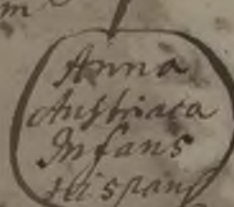 m
Anna
Austriaca
Infans
Hispan